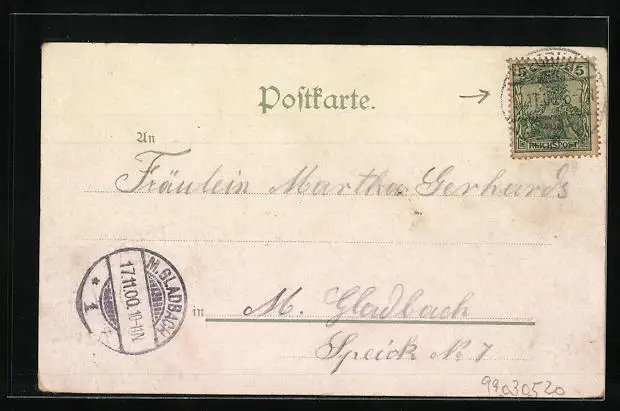 Postkarte.
5 5
REICHSPOST
An
Fräulein Martha Gerhards
M. GLADBACH
17.11.00. 10-11N.
* 1
in M. Gladbach
Speick No 7
99030520